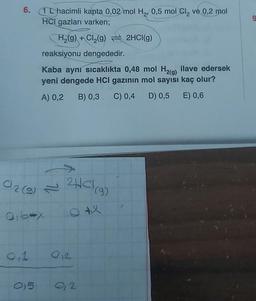 6. 1 L hacimli kapta 0,02 mol H₂, 0,5 mol Cl₂ ve 0,2 mol
HCl gazları varken;
H₂(g) + Cl₂(g) ⇌ 2HCl(g)
reaksiyonu dengededir.
Kaba aynı sıcaklıkta 0,48 mol H₂(g) ilave edersek
yeni dengede HCl gazının mol sayısı kaç olur?
A) 0,2 B) 0,3 C) 0,4 D) 0,5 E) 0,6
2(g) ⇌ 2HCl(g)
0,1 0,2
0,5 0,2